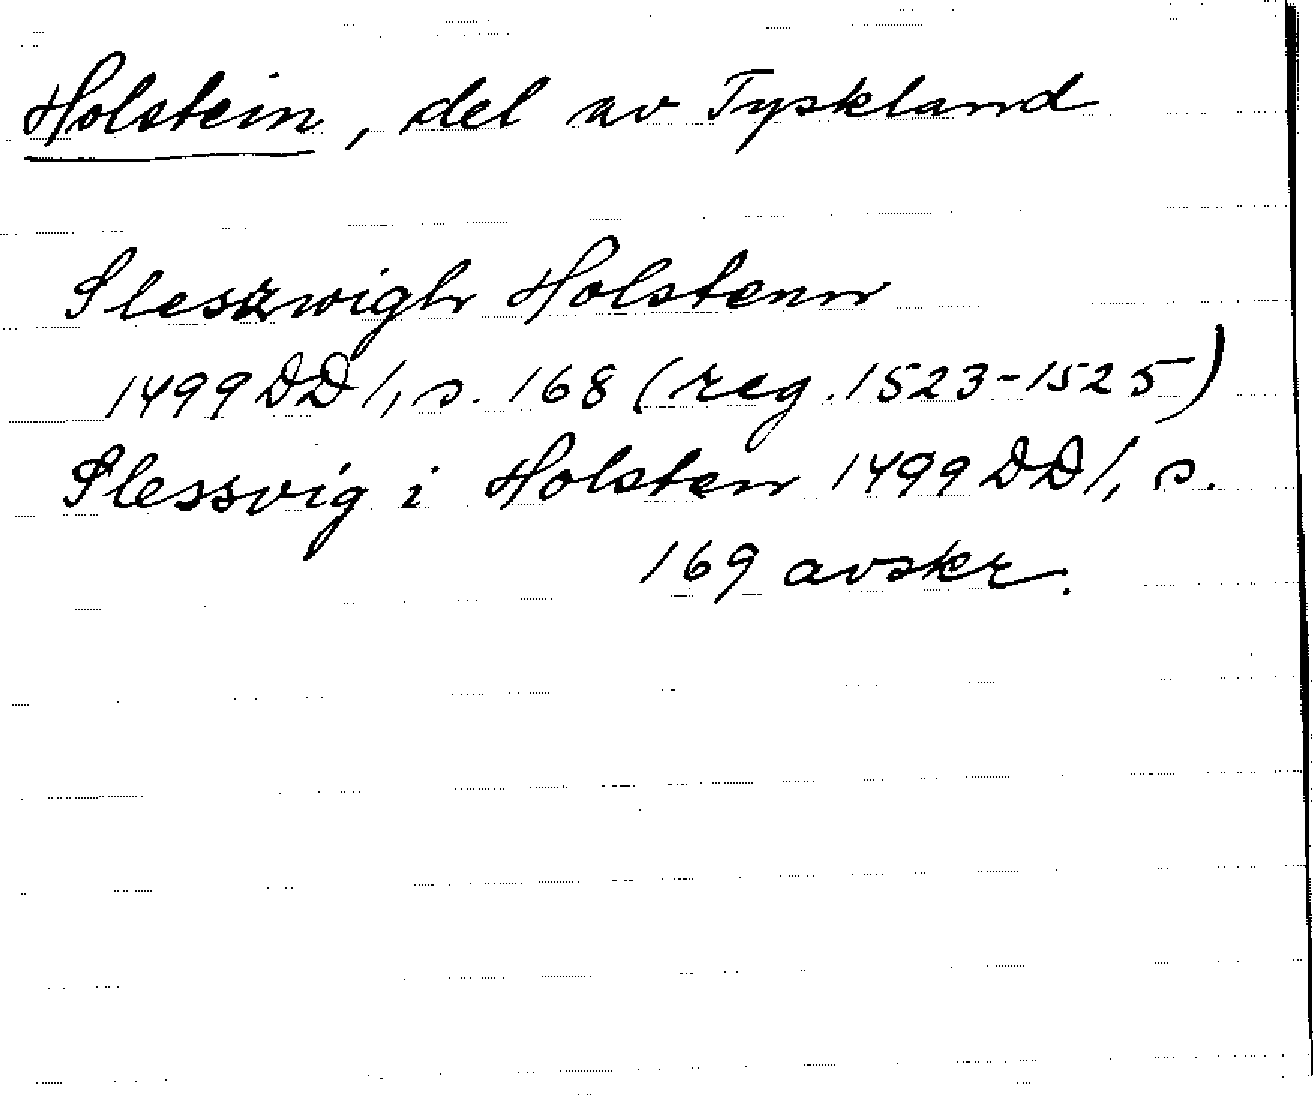 Holstein, del av Tyskland
Sleszwigh Holstenn
1499 DD 1, s. 168 (reg. 1523-1525)
Slessvig i Holsten 1499 DD 1, s.
169 avskr.